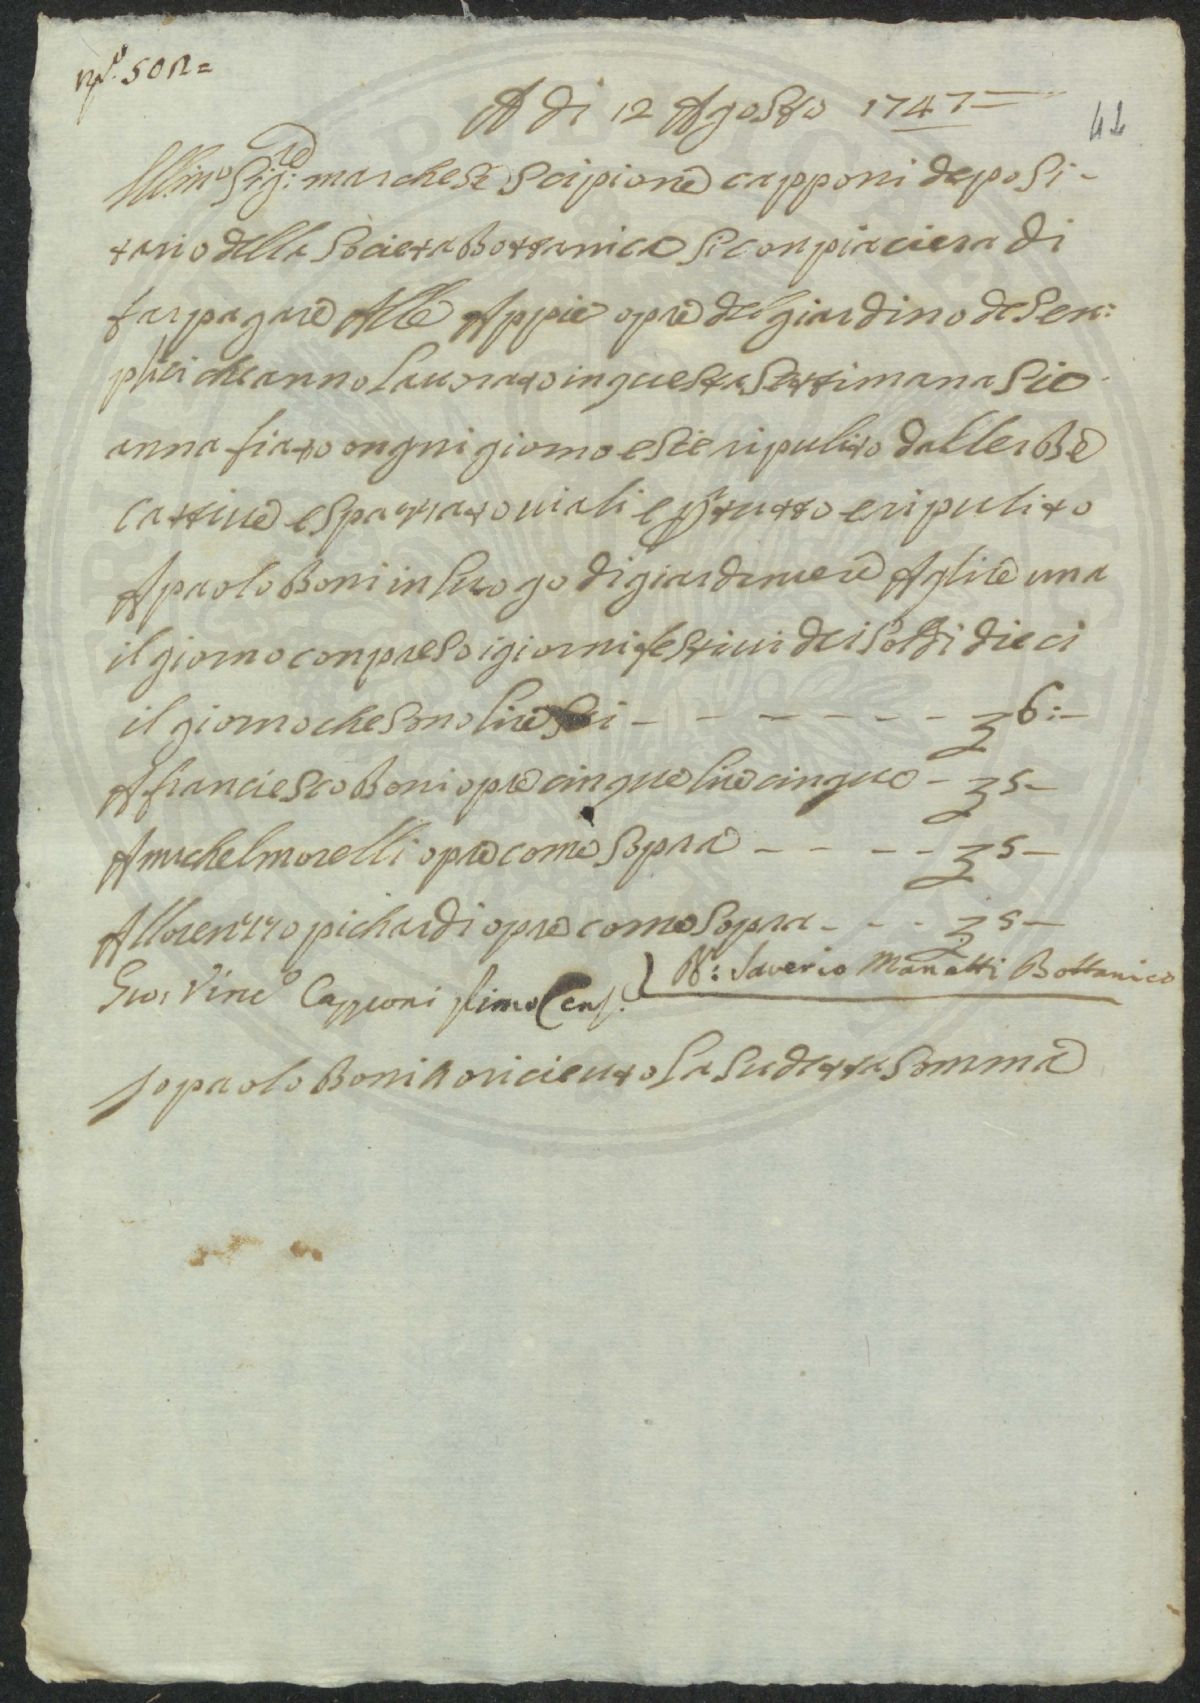 N.º 502=
A di 12 Agosto 1747
42
Ill.mo Sig.re marchese Scipione capponi deposi-
tario della Societa Bottanica Si conpiaciera di
far pagare Alle Appie opre del giardino de Sen:
plici che anno Lauorato in questa Settimana Sie
annafiato ongni giorno e Sie ripulito dallerbe
cattiue e spazzato uiali e p tutto e ripulito
A paolo Boni in luogo di giardiniere A glire una
il giorno conpreso i giorni festiui dei Soldi dieci
il giorno che Sono lire Sei - - - - - - - £ 6:-
A franciesco Boni opre cinque lire cinque - £ 5-
A michel morelli opre come Sopra - - - - £ 5-
A llorenzo pichardi opre come Sopra - - - £ 5-
Gio: Vinc.o Capponi primo Cens.
D.r: Saverio Manetti Bottanico
Jo paolo Boni o riceuto La Sudetta Somma